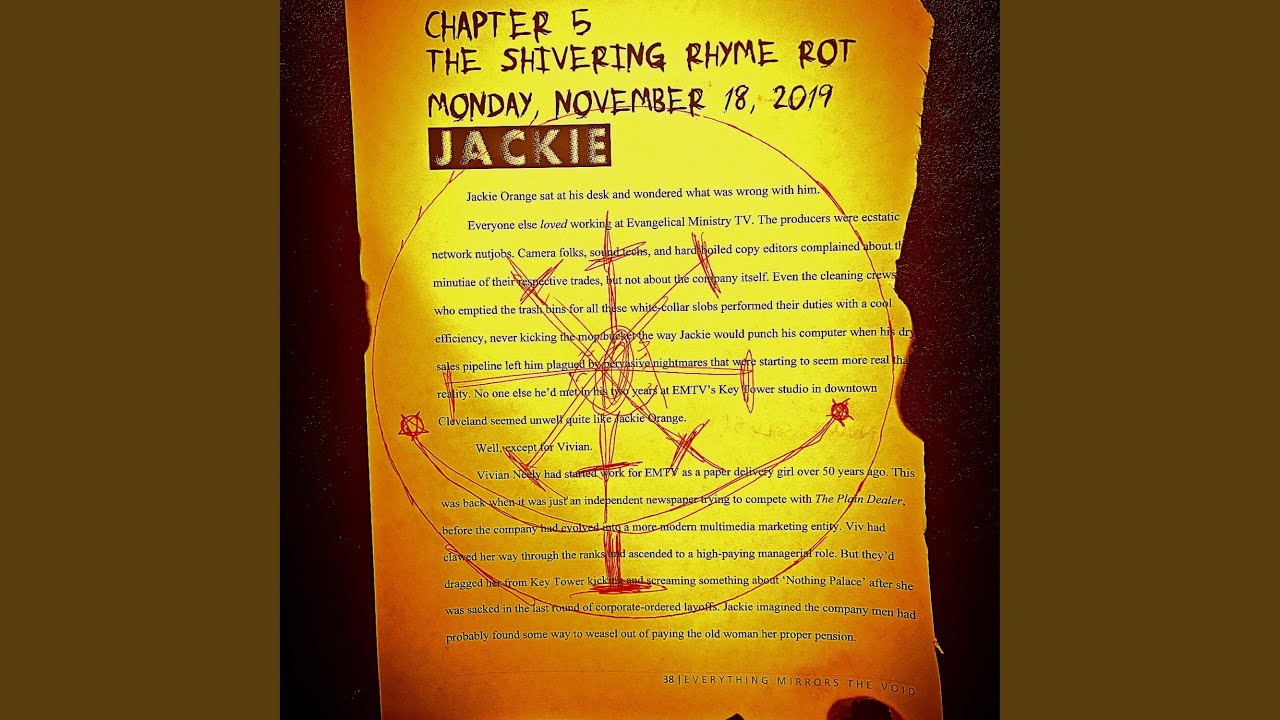 CHAPTER 5
THE SHIVERING RHYME ROT
MONDAY, NOVEMBER 18, 2019
JACKIE
Jackie Orange sat at his desk and wondered what was wrong with him.
Everyone else loved working at Evangelical Ministry TV. The producers were ecstatic
network nutjobs. Camera folks, sound techs, and hard-boiled copy editors complained about th
minutiae of their respective trades, but not about the company itself. Even the cleaning crews
who emptied the trash bins for all these white-collar slobs performed their duties with a cool
efficiency, never kicking the mop bucket the way Jackie would punch his computer when his dry
sales pipeline left him plagued by pervasive nightmares that were starting to seem more real tha
reality. No one else he'd met in his two years at EMTV's Key Tower studio in downtown
Cleveland seemed unwell quite like Jackie Orange.
Well, except for Vivian.
Vivian Neely had started work for EMTV as a paper delivery girl over 50 years ago. This
was back when it was just an independent newspaper trying to compete with The Plain Dealer,
before the company had evolved into a more modern multimedia marketing entity. Viv had
clawed her way through the ranks and ascended to a high-paying managerial role. But they'd
dragged her from Key Tower kicking and screaming something about 'Nothing Palace' after she
was sacked in the last round of corporate-ordered layoffs. Jackie imagined the company men had
probably found some way to weasel out of paying the old woman her proper pension.
38 | EVERYTHING MIRRORS THE VOID